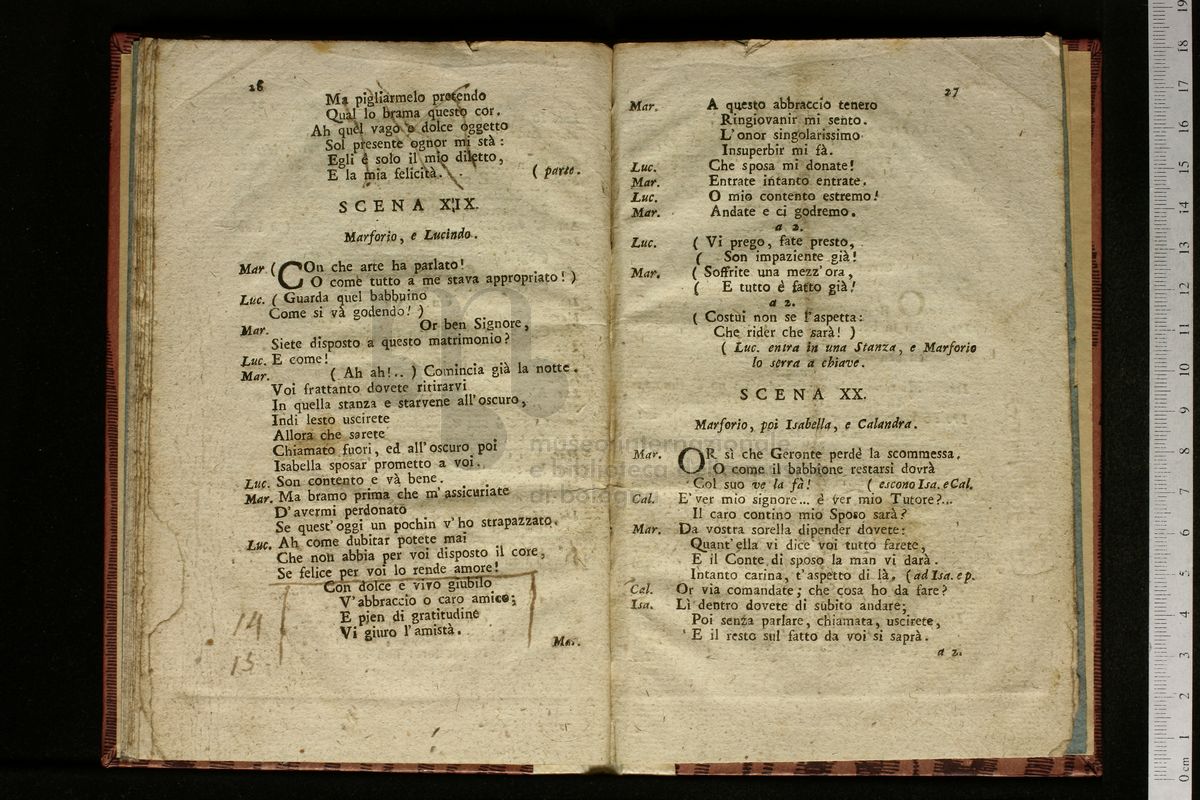 26
Ma pigliarmelo pretendo
Qual lo brama questo cor.
Ah quel vago e dolce oggetto
Sol presente ognor mi stà:
Egli è solo il mio diletto,
E la mia felicità. ( parte.
SCENA XIX.
Marforio, e Lucindo.
Mar. ( COn che arte ha parlato!
O come tutto a me stava appropriato! )
Luc. ( Guarda quel babbuino
Come si và godendo! )
Mar. Or ben Signore,
Siete disposto a questo matrimonio?
Luc. E come!
Mar. ( Ah ah!.. ) Comincia già la notte.
Voi frattanto dovete ritirarvi
In quella stanza e starvene all'oscuro,
Indi lesto uscirete
Allora che sarete
Chiamato fuori, ed all'oscuro poi
Isabella sposar prometto a voi.
Luc. Son contento e và bene.
Mar. Ma bramo prima che m'assicuriate
D'avermi perdonato
Se quest'oggi un pochin v'ho strapazzato.
Luc. Ah come dubitar potete mai
Che non abbia per voi disposto il core,
Se felice per voi lo rende amore!
Con dolce e vivo giubilo
V'abbraccio o caro amico;
E pien di gratitudine
Vi giuro l'amistà.
14
15
Mar.
27
Mar. A questo abbraccio tenero
Ringiovanir mi sento.
L'onor singolarissimo
Insuperbir mi fà.
Luc. Che sposa mi donate!
Mar. Entrate intanto entrate.
Luc. O mio contento estremo!
Mar. Andate e ci godremo.
a 2.
Luc. ( Vi prego, fate presto,
( Son impaziente già!
Mar. ( Soffrite una mezz'ora,
( E tutto è fatto già!
a 2.
( Costui non se l'aspetta:
Che rider che sarà! )
( Luc. entra in una Stanza, e Marforio
lo serra a chiave.
SCENA XX.
Marforio, poi Isabella, e Calandra.
Mar. OR sì che Geronte perdè la scommessa.
O come il babbione restarsi dovrà
Col suo ve la fà! ( escono Isa. e Cal.
Cal. E' ver mio signore... è ver mio Tutore?...
Il caro contino mio Sposo sarà?
Mar. Da vostra sorella dipender dovete:
Quant'ella vi dice voi tutto farete,
E il Conte di sposo la man vi darà.
Intanto carina, t'aspetto di là. (ad Isa. e p.
Cal. Or via comandate; che cosa ho da fare?
Isa. Lì dentro dovete di subito andare;
Poi senza parlare, chiamata, uscirete,
E il resto sul fatto da voi si saprà.
a 2.
museo internazionale
e biblioteca
di bologna